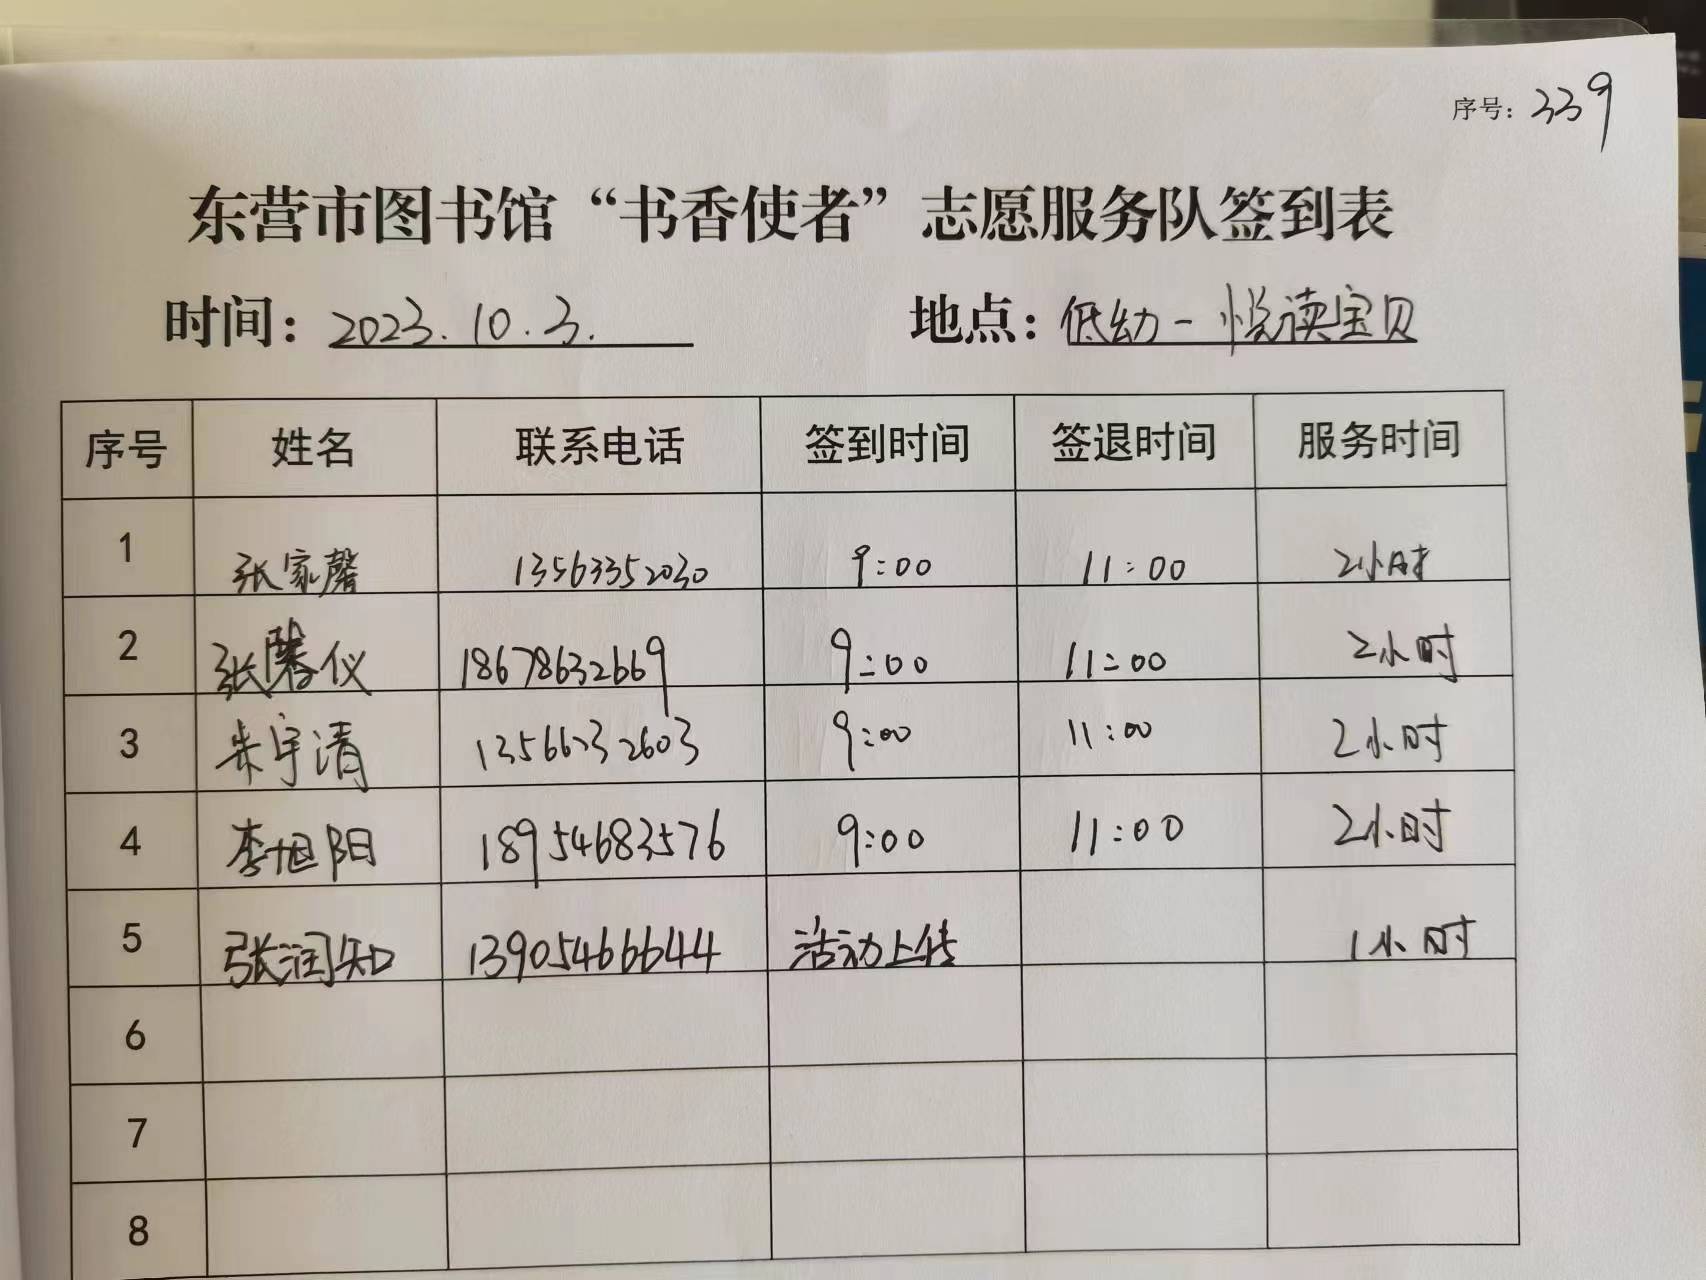 序号：339
东营市图书馆“书香使者”志愿服务队签到表
时间：2023.10.3. 地点：低幼-悦读宝贝
序号 姓名 联系电话 签到时间 签退时间 服务时间
1 张家馨 13563352030 9:00 11:00 2小时
2 张馨仪 18678632669 9:00 11:00 2小时
3 朱宇清 9:00 11:00 2小时
4 李旭阳 18954683576 9:00 11:00 2小时
5 张润知 13905466644 活动上传 1小时
6
7
8